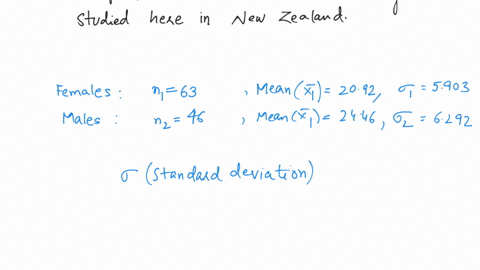 studied here in New Zealand.
Females : n₁=63 , Mean(x̄₁)=20.92, σ₁=5.903
Males : n₂=46 , Mean(x̄₁)=24.46, σ₂=6.292
σ (standard deviation)